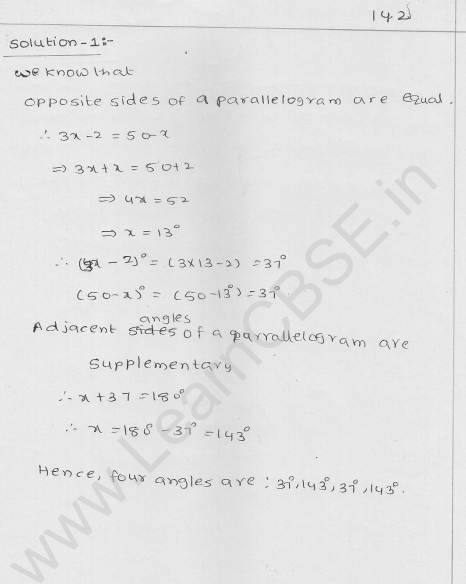 142
Solution-1:-
we know that
opposite sides of a parallelogram are equal.
∴ 3x-2 = 50-x
⇒ 3x+x = 50+2
⇒ 4x = 52
⇒ x = 13°
∴ (3x - 2)° = (3x13-2) = 37°
(50-x)° = (50-13°) = 37°.
angles
Adjacent sides of a parrallelogram are
supplementary
∴ x+37 = 180°
∴ x = 180° - 37° = 143°
Hence, four angles are : 37°, 143°, 37°, 143°.
www.LearnCBSE.in